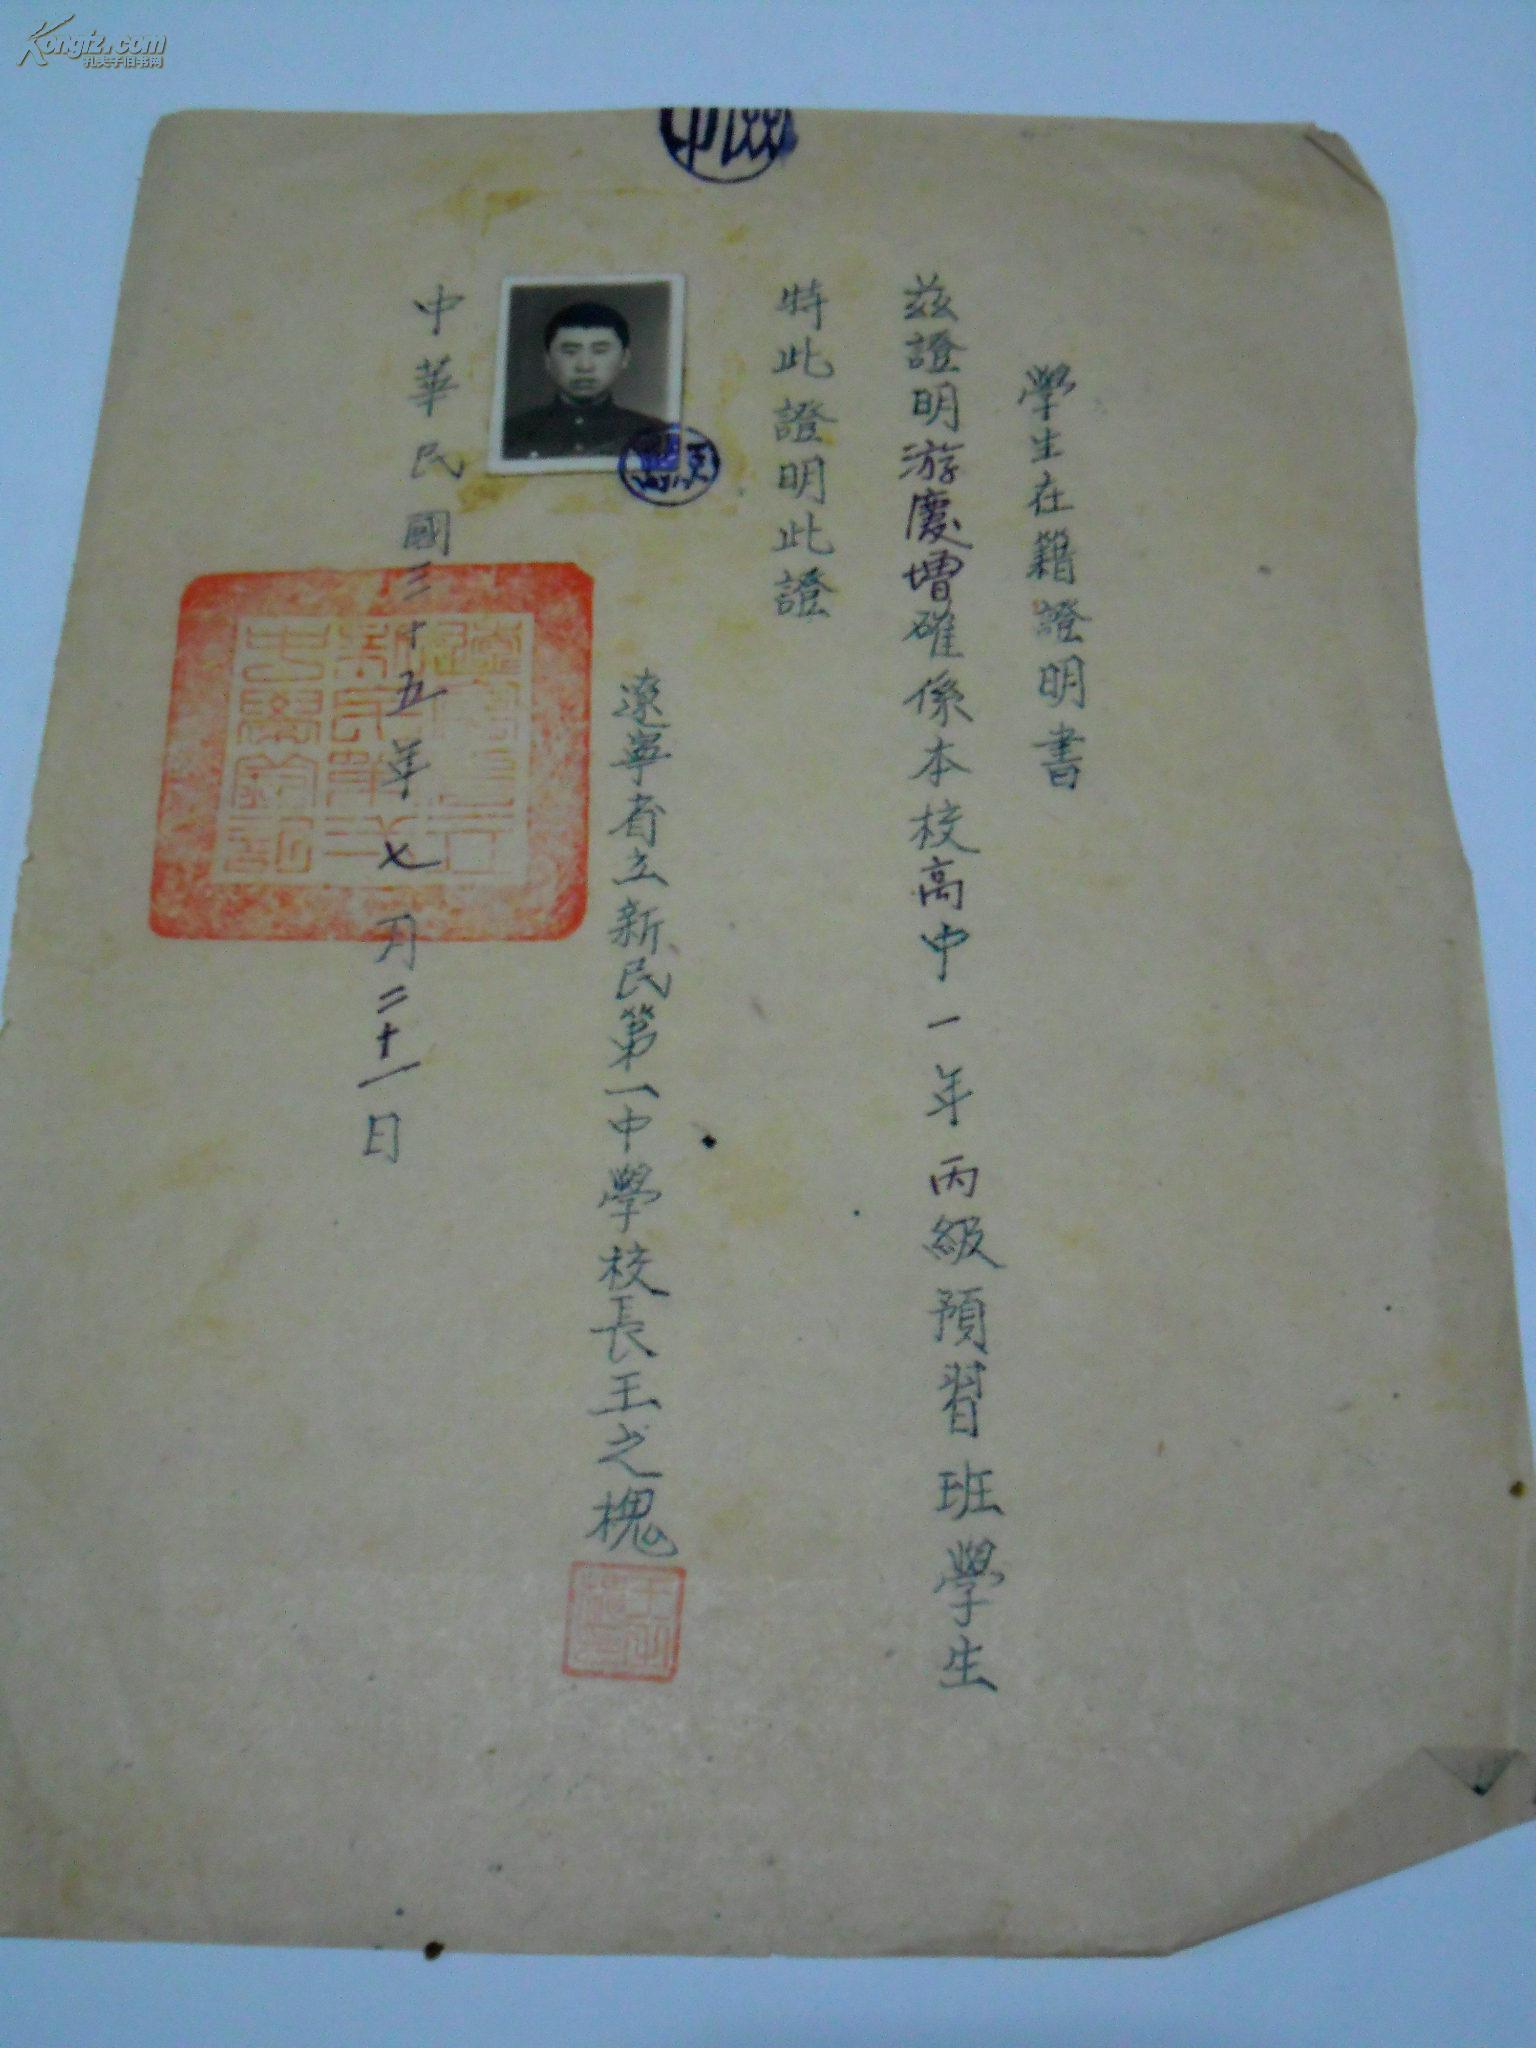 Kongfz.com
孔夫子旧书网
學生在籍證明書
茲證明游慶增確係本校高中一年丙級預習班學生
特此證明此證
遼寧省立新民第一中學校長王之槐
中華民國三十五年七月二十一日